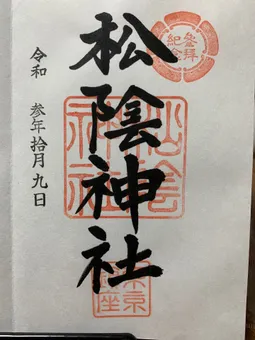 参拝
紀念
松陰神社
令和 参年拾月九日
松陰
神社
東京
鎮座